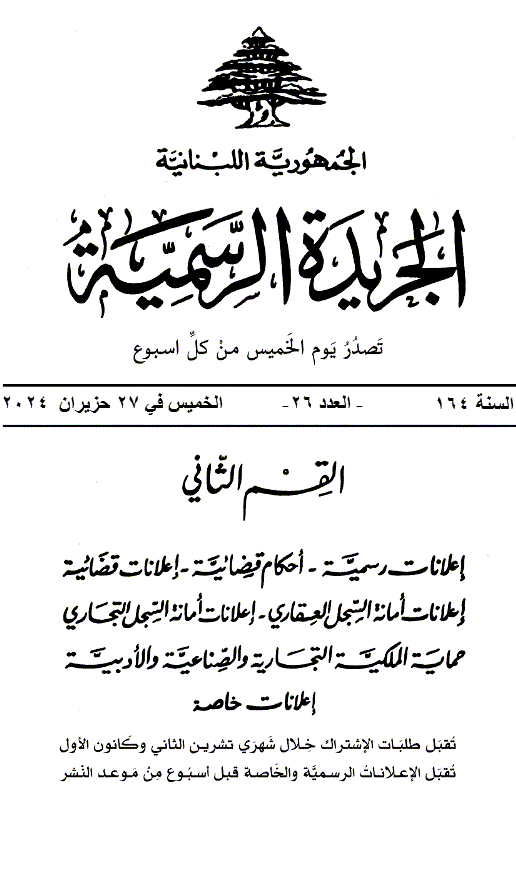 الجمهوريّة اللبنانيّة
الجريدة الرسميّة
تَصدُرُ يَوم الخَميس منْ كلِّ اسبوع
السنة ١٦٤ - العدد ٢٦- الخميس في ٢٧ حزيران ٢٠٢٤
القِسْم الثّاني
إعلانات رسميَّة - أحكام قضائيَّة - إعلانات قضائية
إعلانات أمانة السِّجل العِقاري - إعلانات أمانة السِّجل التِّجاري
حماية الملكيَّة التجارية والصِّناعيَّة والأدبيَّة
إعلانات خاصة
تُقبَل طلبَات الإشتراك خِلال شَهرَي تشرين الثاني وكَانون الأول
تُقبَل الإعلانات الرسميَّة والخَاصة قبل أسبُوع مِنْ مَوعد النَشر